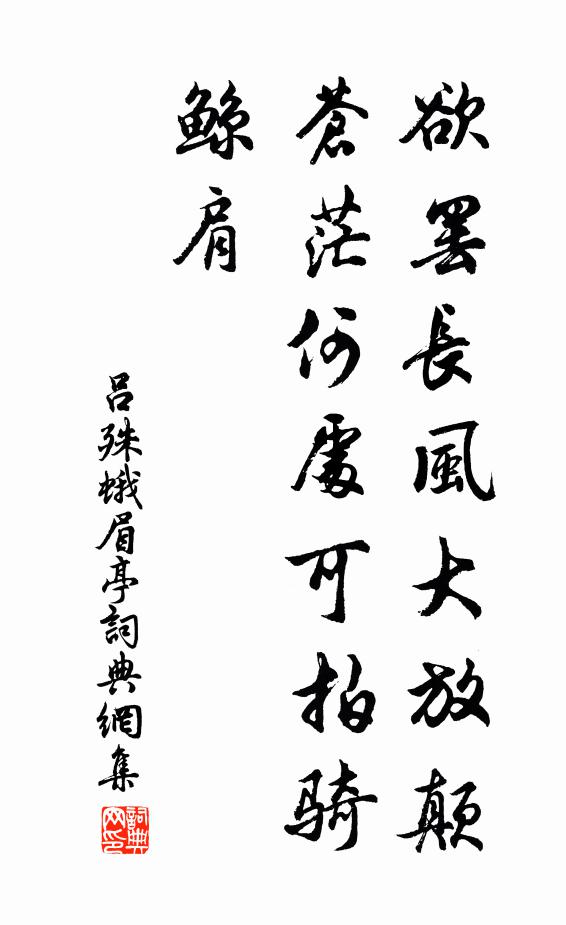 欲罷長風大放顛
蒼茫何處可拍騎
鯨肩
吕殊蛾眉亭詞典網集
詞典網印